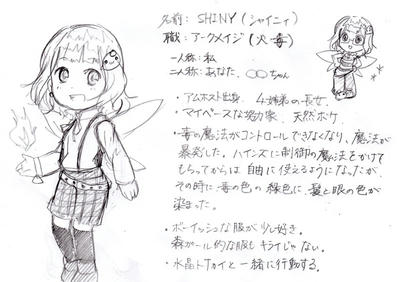 名前: SHINY (シャイニィ)
職: アークメイジ (火・毒)
一人称: 私
二人称: あなた、○○ちゃん
・アムホスト出身、4姉妹の長女。
・マイペースな努力家、天然ボケ
・毒の魔法がコントロールできなくなり、魔法が
暴発した。ハインズに制御の魔法をかけて
もらってからは自由に使えるようになったが、
その時に毒の色の緑色に、髪と眼の色が
染まった。
・ボーイッシュな服が少し好き。
森ガール的な服もキライじゃない。
・水晶トカイと一緒に行動する。